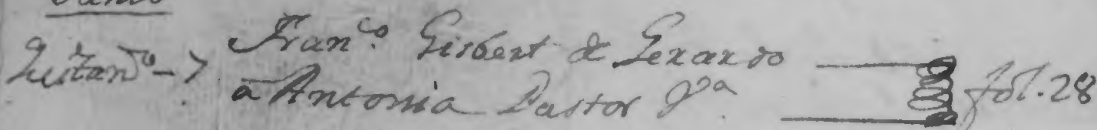 Franco. Gisbert de Gerardo
à Antonia Pastor Va fol. 28